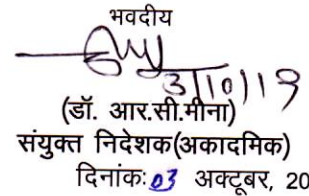 भवदीय
3/10/19
(डॉ. आर.सी.मीना)
संयुक्त निदेशक(अकादमिक)
दिनांक:03 अक्टूबर, 20